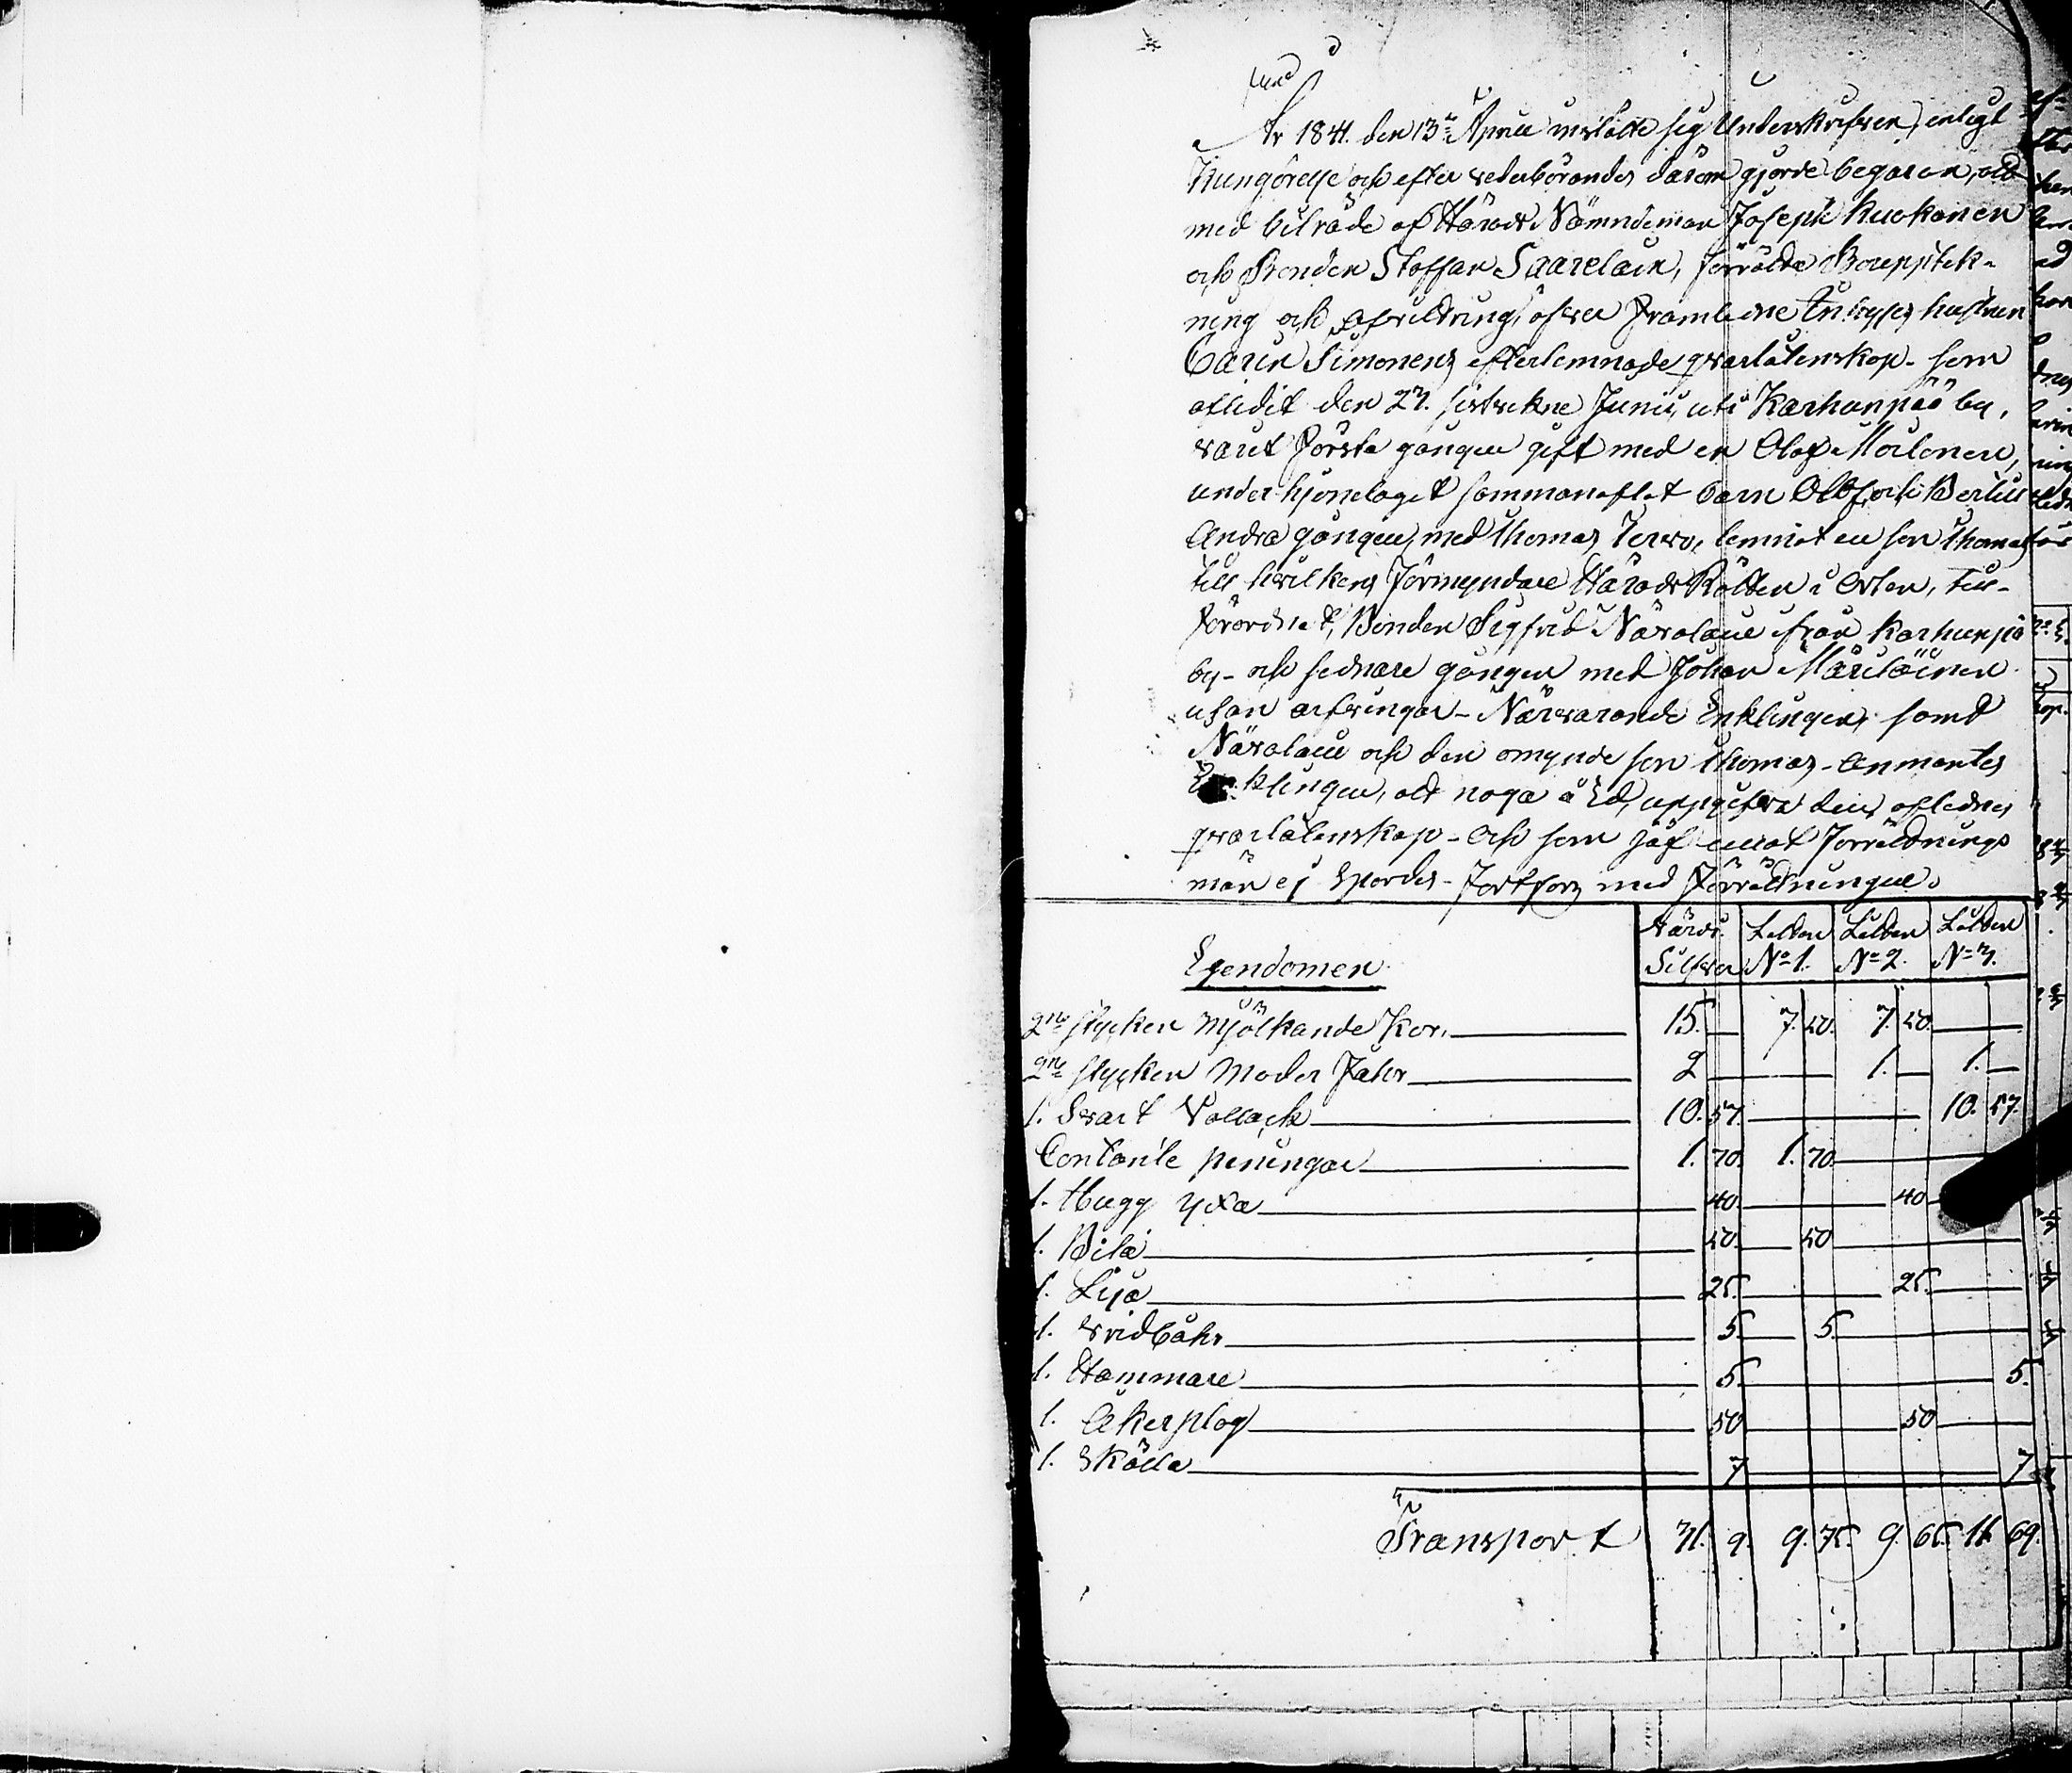 År 1841. den 13de Aprill instälte sig Underskrifven, enligt
Kungörelse och efter vederbörandes därom gjorde begäran, och
med biträde af Härads Nämndeman Joseph Kuokanen
och Bonden Staffan Saarelain, förrätta Bouppteck-
ning och afvittring öfver framledne Enkyses hustrun
Carin Simonens efterlemnade qvarlåtenskap - som
aflidit den 27. sistvekne Junii, uti Karhunpää by,
varit första gången gift med en Olof Moilanen,
under hjonelaget sammanaflat barn Olof och Bertill
Andra gången med Thomas Tervo, lemnat en son Thomas
till hvilkens Förmyndare Härads Rätten i Orten, till-
förordnat, Bonden Sigfrid Närolain från Karhunpä
by - och sednare gången med Johan Märiläinen
utan arfvingar - Närvarande Enklingen, samt
Närolain och den omynde son Thomas - anmantes
Enklingen, att noga å Ed, uppgifva den aflednes
qvarlåtenskap - Och som jäf emot Förrättnings
män ej spordes - Fortfors med Förrättningen.
Egendomen Hårdt Silfver Lotten No 1. Lotten No 2. Lotten No 3.
2ne stycken Mjölkande Kor. 15. 7. 50. 7. 50.
2ne stycken Moder Fåhr 2 1. 1.
1. Svart Vallack 10. 57. 10. 57.
Contante peningar 1. 70. 1. 70.
1. Hugg yxa 40. 40
1. Bila 50. 50
1. Lija 25. 25.
1. Vridbåhr 5. 5.
1. Hammare 5. 5.
1. Åkerplog 50 50
1. Skälla 7 7
Transport 31. 9. 9. 75. 9. 65. 11. 69.